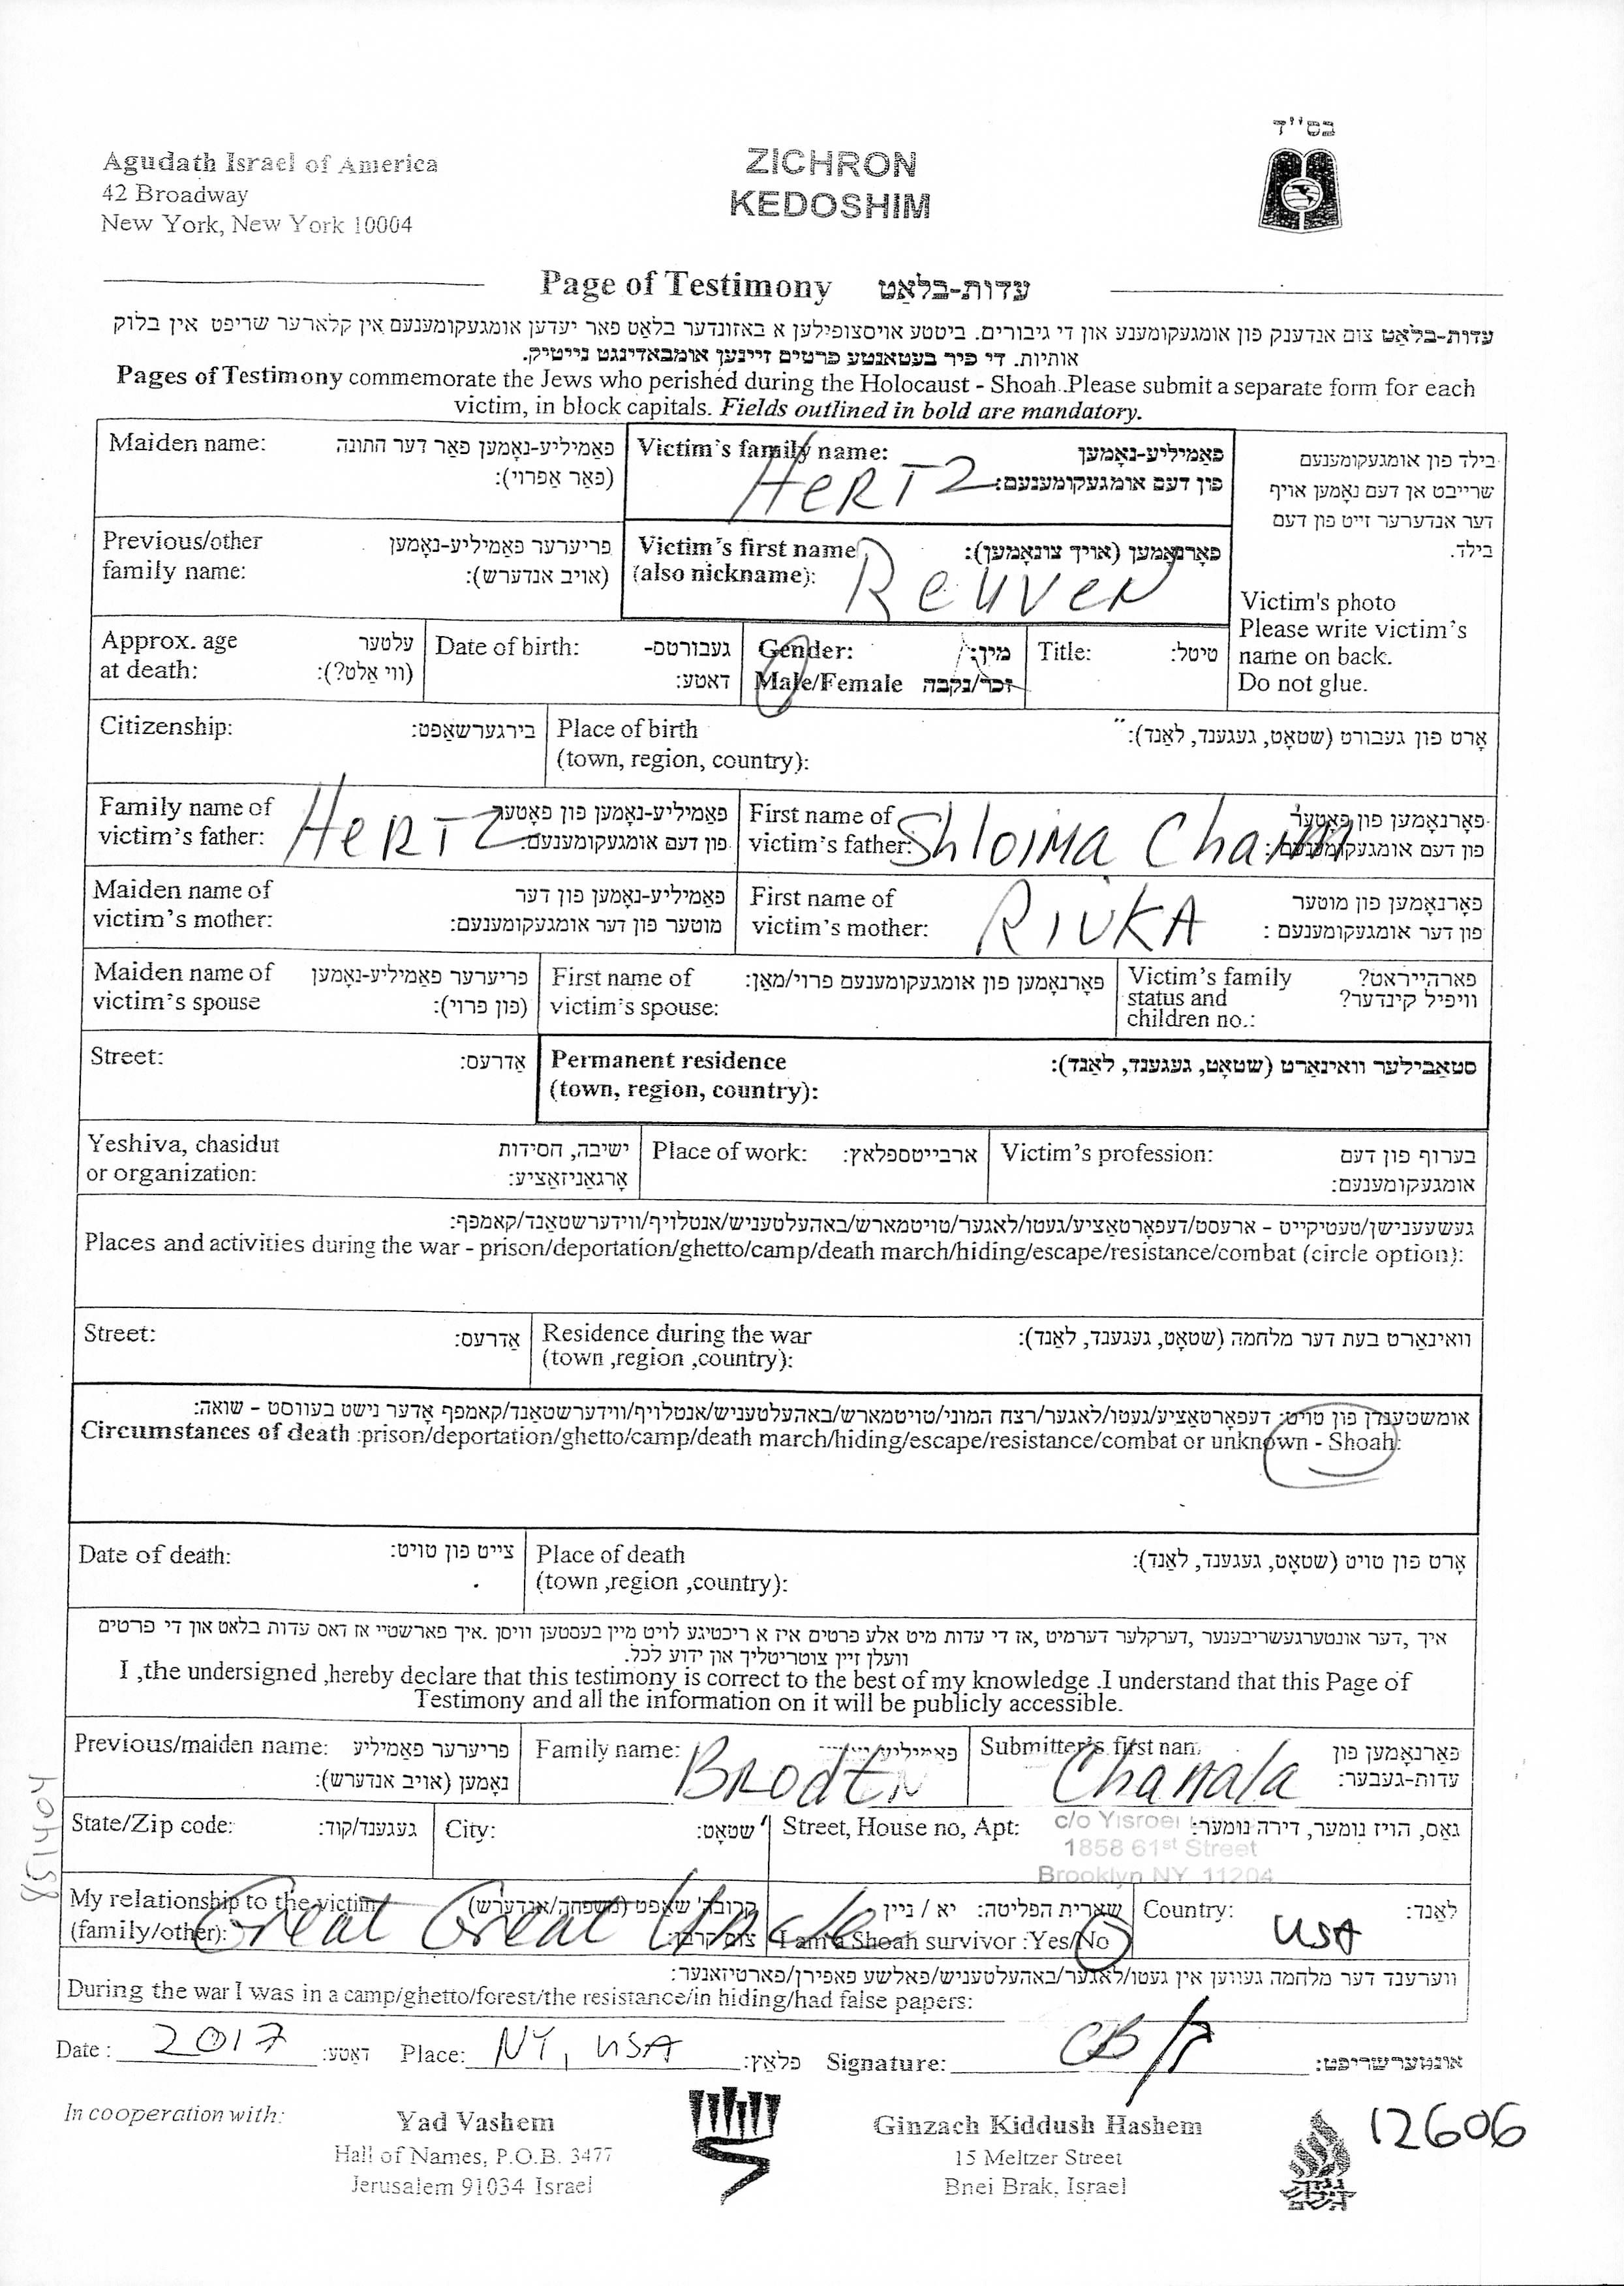 בס''ד
Agudath Israel of America
42 Broadway
New York, New York 10004
ZICHRON
KEDOSHIM
Page of Testimony עדות-בלאַט
עדות-בלאַט צום אנדענק פון אומגעקומענע און די גיבורים. ביטטע אויסצופילען א באזונדער בלאַט פאר יעדען אומגעקומענעם אין קלארער שריפט אין בלוק
אותיות. די פיר בעטאנטע פרטים זיינען אומבאדינגט נייטיק.
Pages of Testimony commemorate the Jews who perished during the Holocaust - Shoah. Please submit a separate form for each
victim, in block capitals. Fields outlined in bold are mandatory.
Maiden name: פאַמיליע-נאָמען פאר דער התונה
(פאַר אַפרוי):
Victim's family name: פאַמיליע-נאָמען
פין דעם אומגעקומענעם:
HeRTZ
בילד פון אומגעקומענעם
שרייבט אן דעם נאָמען אויף
דער אנדערער זייט פון דעם
בילד.
Victim's photo
Please write victim's
name on back.
Do not glue.
Previous/other פריערער פאַמיליע-נאָמען
family name: (אויב אנדערש):
Victim's first name פאָרנאָמען (אויך צונאָמען):
(also nickname): ReuveN
Approx. age עלטער
at death: (ווי אַלט?):
Date of birth: געבורטס-
דאטע:
Gender: מין:
Male/Female זכר/נקבה
Title: טיטל:
Citizenship: בירגערשאַפט:
Place of birth אָרט פון געבורט (שטאָט, געגענד, לאַנד):
(town, region, country):
Family name of פאַמיליע-נאָמען פון פאָטער
victim's father: פון דעם אומגעקומענעם:
HeRTZ
First name of פאָרנאָמען פון פאָטער
victim's father: פון דעם אומגעקומענעם:
Shloima Chaim
Maiden name of פאַמיליע-נאָמען פון דער
victim's mother: מוטער פון דער אומגעקומענעם:
First name of פאָרנאָמען פון מוטער
victim's mother: פון דער אומגעקומענעם :
RIVKA
Maiden name of פריערער פאַמיליע-נאָמען
victim's spouse (פון פרוי):
First name of פאָרנאָמען פון אומגעקומענעם פרוי/מאַן:
victim's spouse:
Victim's family פארהייראט?
status and וויפיל קינדער?
children no.:
Street: אַדרעס:
Permanent residence סטאַבילער וואינאַרט (שטאָט, געגענד, לאַנד):
(town, region, country):
Yeshiva, chasidut ישיבה, חסידות
or organization: אָרגאַניזאַציע:
Place of work: ארבייטספלאץ:
Victim's profession: בערוף פון דעם
אומגעקומענעם:
געשעענישן/טעטיקייט - ארעסט/דעפאָרטאַציע/געטו/לאגער/טויטמארש/באהעלטעניש/אנטלויף/ווידערשטאַנד/קאמפף:
Places and activities during the war - prison/deportation/ghetto/camp/death march/hiding/escape/resistance/combat (circle option):
Street: אַדרעס:
Residence during the war וואינאַרט בעת דער מלחמה (שטאָט, געגענד, לאַנד):
(town ,region ,country):
אומשטענדן פון טויט: דעפאָרטאַציע/געטו/לאגער/רצח המוני/טויטמארש/באהעלטעניש/אנטלויף/ווידערשטאַנד/קאמפף אָדער נישט בעוווסט - שואה:
Circumstances of death :prison/deportation/ghetto/camp/death march/hiding/escape/resistance/combat or unknown - Shoah:
Date of death: צייט פון טויט:
Place of death אָרט פון טויט (שטאָט, געגענד, לאַנד):
(town ,region ,country):
איך ,דער אונטערגעשריבענער ,דערקלער דערמיט ,אז די עדות מיט אלע פרטים איז א ריכטיגע לויט מיין בעסטען וויסן .איך פארשטיי אז דאס עדות בלאט און די פרטים
וועלן זיין צוטריטליך און ידוע לכל.
I ,the undersigned ,hereby declare that this testimony is correct to the best of my knowledge .I understand that this Page of
Testimony and all the information on it will be publicly accessible.
Previous/maiden name: פריערער פאַמיליע
נאָמען (אויב אנדערש):
Family name: BRodEN
Submitter's first פאָרנאָמען פון
עדות-געבער:
Chanala
State/Zip code: געגענד/קוד:
City: שטאָט:
Street, House no, Apt: גאַס, הויז נומער, דירה נומער:
c/o Yisroel
1858 61st Street
Brooklyn NY 11204
My relationship to the victim
(family/other): Great Great Uncle
שארית הפליטה: יא / ניין
I am a Shoah survivor :Yes/No
Country: לאַנד:
USA
ווערענד דער מלחמה געווען אין געטו/לאַגער/באהעלטעניש/פאלשע פאפירן/פארטיזאנער:
During the war I was in a camp/ghetto/forest/the resistance/in hiding/had false papers:
Date : 2017 דאטע: Place: NY, USA פלאץ: Signature: CB אונטערשריפט:
In cooperation with:
Yad Vashem
Hall of Names, P.O.B. 3477
Jerusalem 91034 Israel
Ginzach Kiddush Hashem
15 Meltzer Street
Bnei Brak, Israel
12606